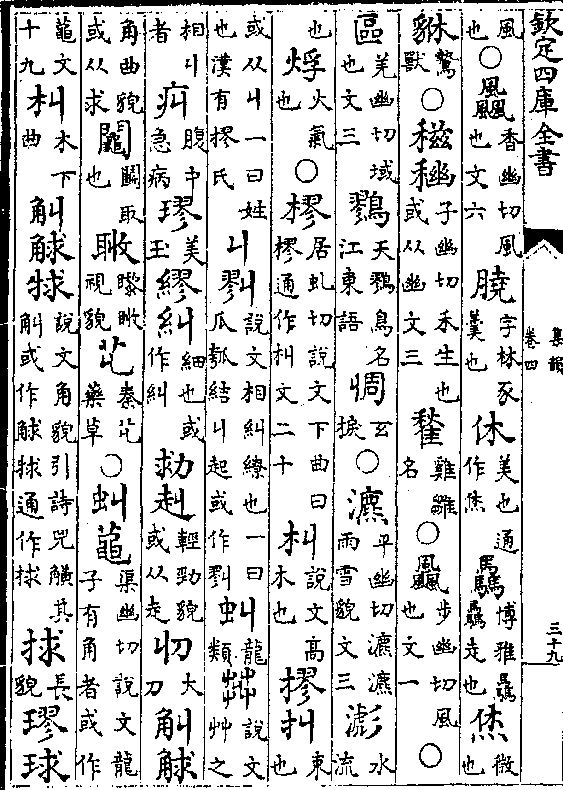 欽定四庫全書 集韻 卷四 三十九
風也○飍香幽切風也文六膮字林豕羹也休美也通作烋驫博雅驫驫走也烋微也
貅鷙獸○稵𥠢子幽切禾生也或从幽文三雞雛名○颮步幽切風也文一○
區羌幽切域也文三鷚天鷚鳥名江東語惆○瀌平幽切瀌瀌雨雪貌文三滮水流
也烰火氣也○樛居虬切說文下曲曰樛通作朻文二十朻說文高木也摎㧃束也
或从丩一曰姓也漢有摎氏丩說文相糾繚也一曰瓜瓠結丩起或作虯龍類茻說文艸之
相丩者疝腹中急病璆美玉繆糾細也或作糾赳輕勁貌或从走大刀觓觩
角曲貌或从求鬮鬭取也視貌艽秦艽藥草○虯渠幽切說文龍子有角者或作
龍文十九朻木下曲觓觩說文角貌引詩兕觵其觓或作觩通作捄捄長貌璆球